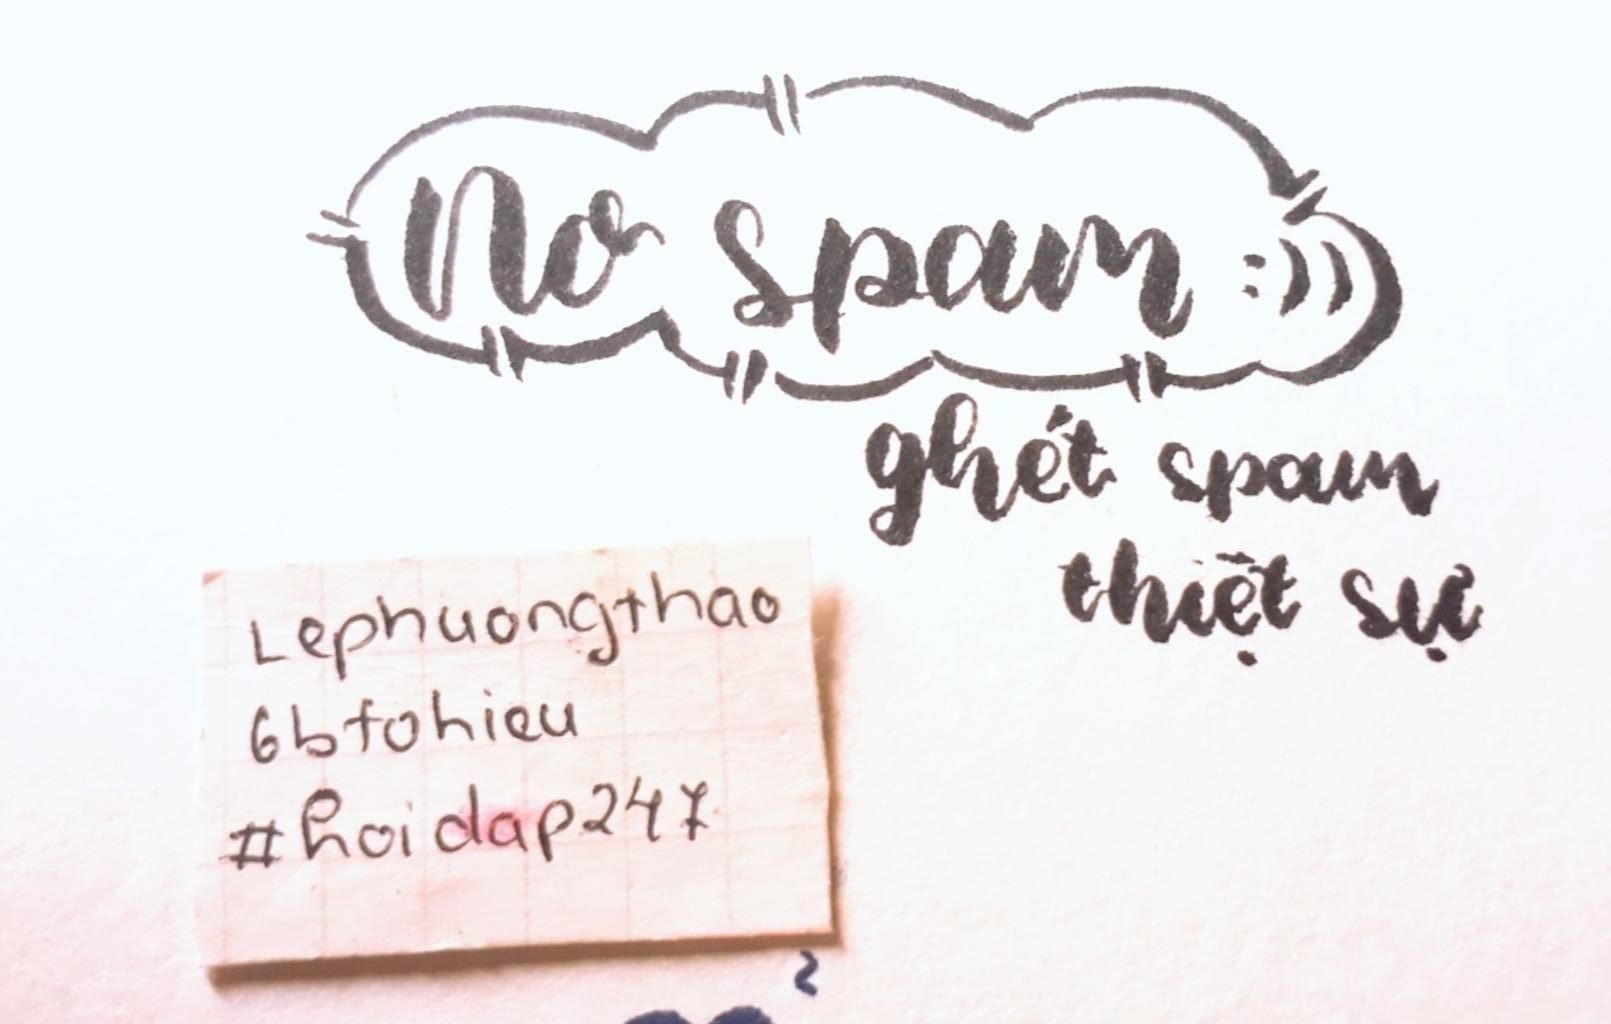 No spam :)))
ghét spam
thiệt sự
Lephuongthao
6btohieu
#hoidap247
2